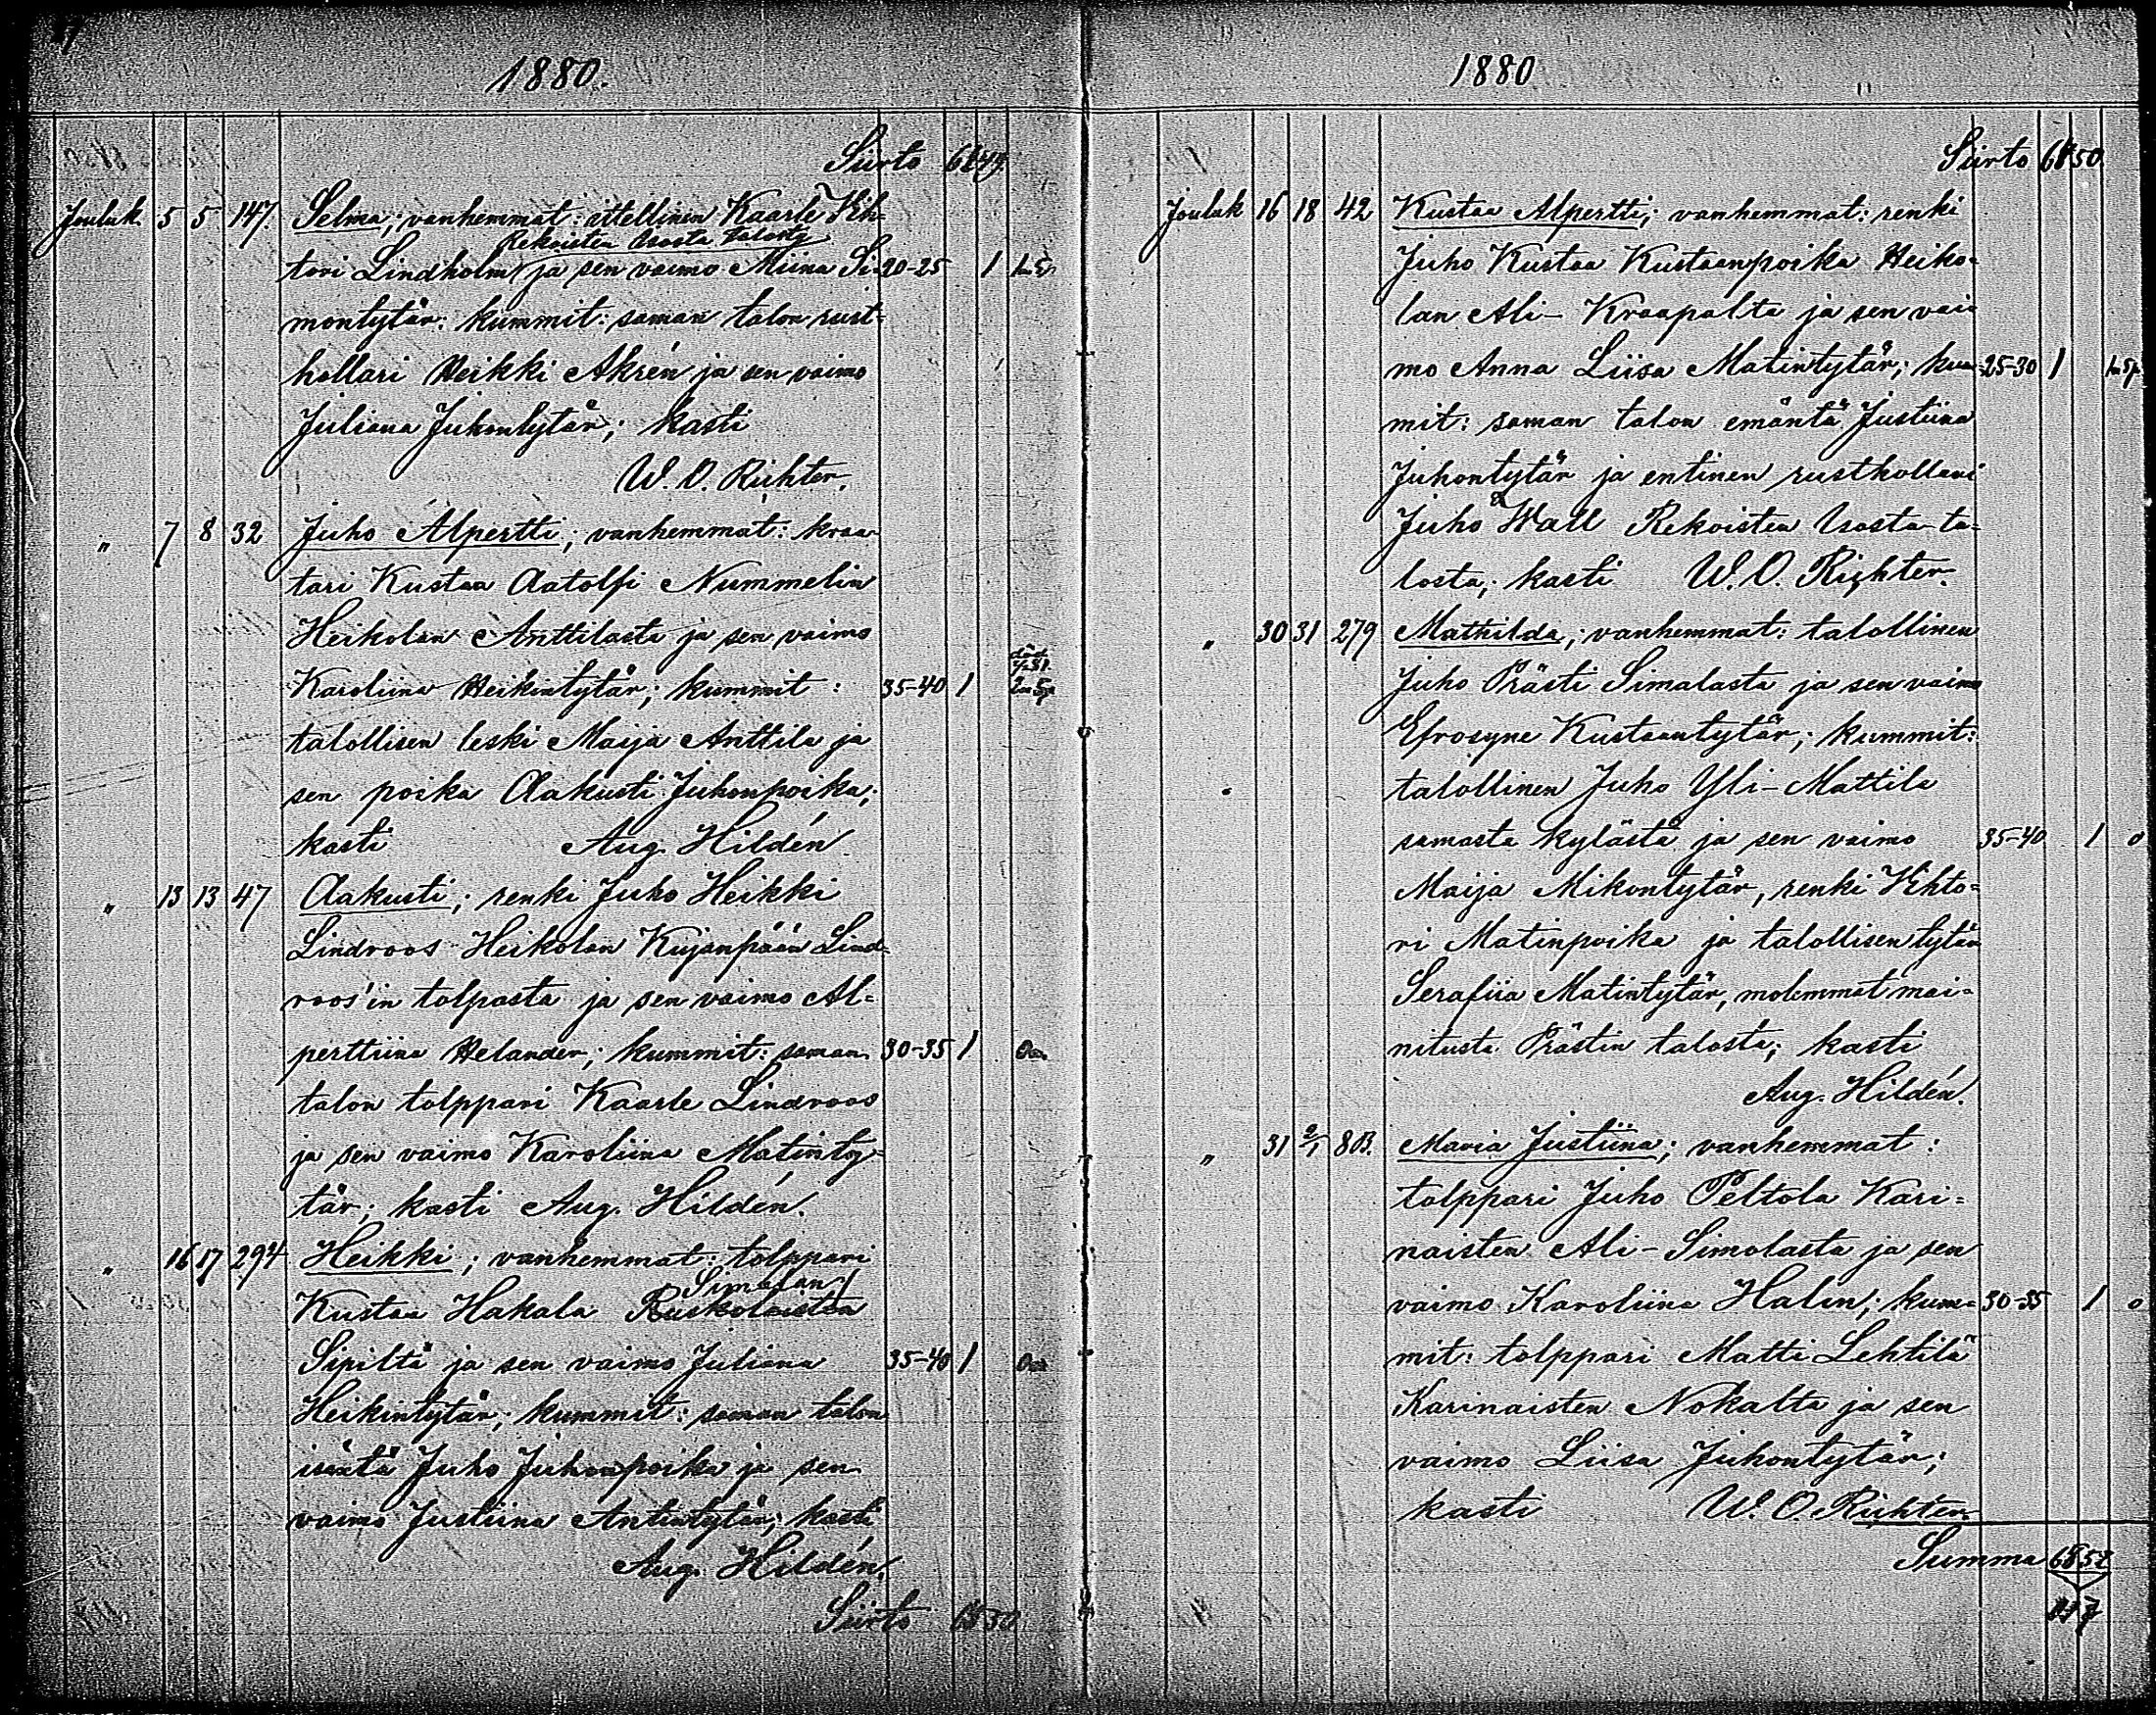 1880.
Siirto 61 49
Jouluk. 5 5 147. Selma; vanhemmat: ittellinen Kaarle Vih-
Rekoisten Uosta talosta
tori Lindholm ja sen vaimo Miina Si- 20-25 1
montytär: kummit: saman talon rust-
hollari Heikki Akrén ja sen vaimo
Juliana Juhontytär; kasti
W. O. Richter.
" 7 8 32 Juho Alpertti; vanhemmat: kraa-
tari Kustaa Aatolfi Nummelin
Heikolan Anttilasta ja sen vaimo
Karoliina Heikintytär; kummit: 35-40 1
talollisen leski Maija Anttila ja
sen poika Aakusti Juhonpoika;
kasti Aug. Hildén
" 13 13 47 Aakusti; renki Juho Heikki
Lindroos Heikolan Kujanpään Lind-
roos'in tolpasta ja sen vaimo Al=
perttiina Helander; kummit: saman 30-35 1
talon tolppari Kaarle Lindroos
ja sen vaimo Karoliina Matinty-
tär; kasti Aug. Hildén.
" 16 17 294 Heikki; vanhemmat: tolppari
Simalan
Kustaa Hakala Ruskolaisten
Sipiltä ja sen vaimo Juliana 35-40 1
Heikintytär; kummit: saman talon
isäntä Juho Juhonpoika ja sen
vaimo Justiina Antintytär; kasti
Aug. Hildén.
Siirto 65 50
1880
Siirto 65 50
Jouluk 16 18 42 Kustaa Alpertti; vanhemmat: renki
Juho Kustaa Kustaanpoika Heiko-
lan Ali-Kraapalta ja sen vai-
mo Anna Liisa Matintytär; kum- 25-30 1
mit: saman talon emäntä Justiina
Juhontytär ja entinen rusthollari
Juho Wall Rekoisten Uosta ta-
losta; kasti W. O. Richter.
" 30 31 279 Mathilda; vanhemmat: talollinen
Juho Prästi Simalasta ja sen vaimo
Efrosyne Kustaantytär; kummit:
talollinen Juho Yli-Mattila
samasta kylästä ja sen vaimo 35-40 1 0
Maija Mikontytär, renki Vihto=
ri Matinpoika ja talollisen tytär
Serafiia Matintytär, molemmat mai=
nitusta Prästin talosta; kasti
Aug. Hildén.
" 31 2/1 803. Maria Justiina; vanhemmat:
tolppari Juho Peltola Kari=
naisten Ali-Simolasta ja sen
vaimo Karoliina Halin; kum= 30-35 1 0
mit: tolppari Matti Lehtilä
Karinaisten Nokalta ja sen
vaimo Liisa Juhontytär;
kasti W. O. Richter.
Summa 65 52
117